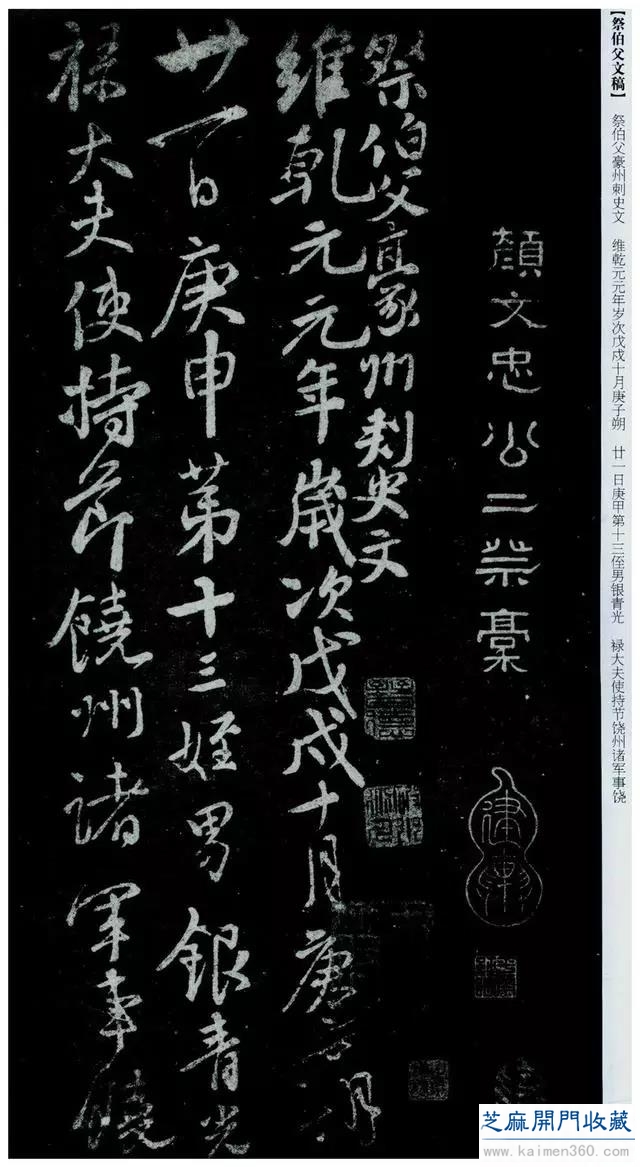 【祭伯父文稿】 祭伯父豪州刺史文 维乾元元年岁次戊戌十月庚子朔 廿一日庚甲第十三侄男银青光 禄大夫使持节饶州诸军事饶
顏文忠公二祭稾
祭伯父豪州刺史文
維乾元元年歲次戊戌十月庚子朔
廿一日庚申第十三姪男銀青光
祿大夫使持節饒州諸軍事饒
芝麻開門收藏
www.kaimen360.com